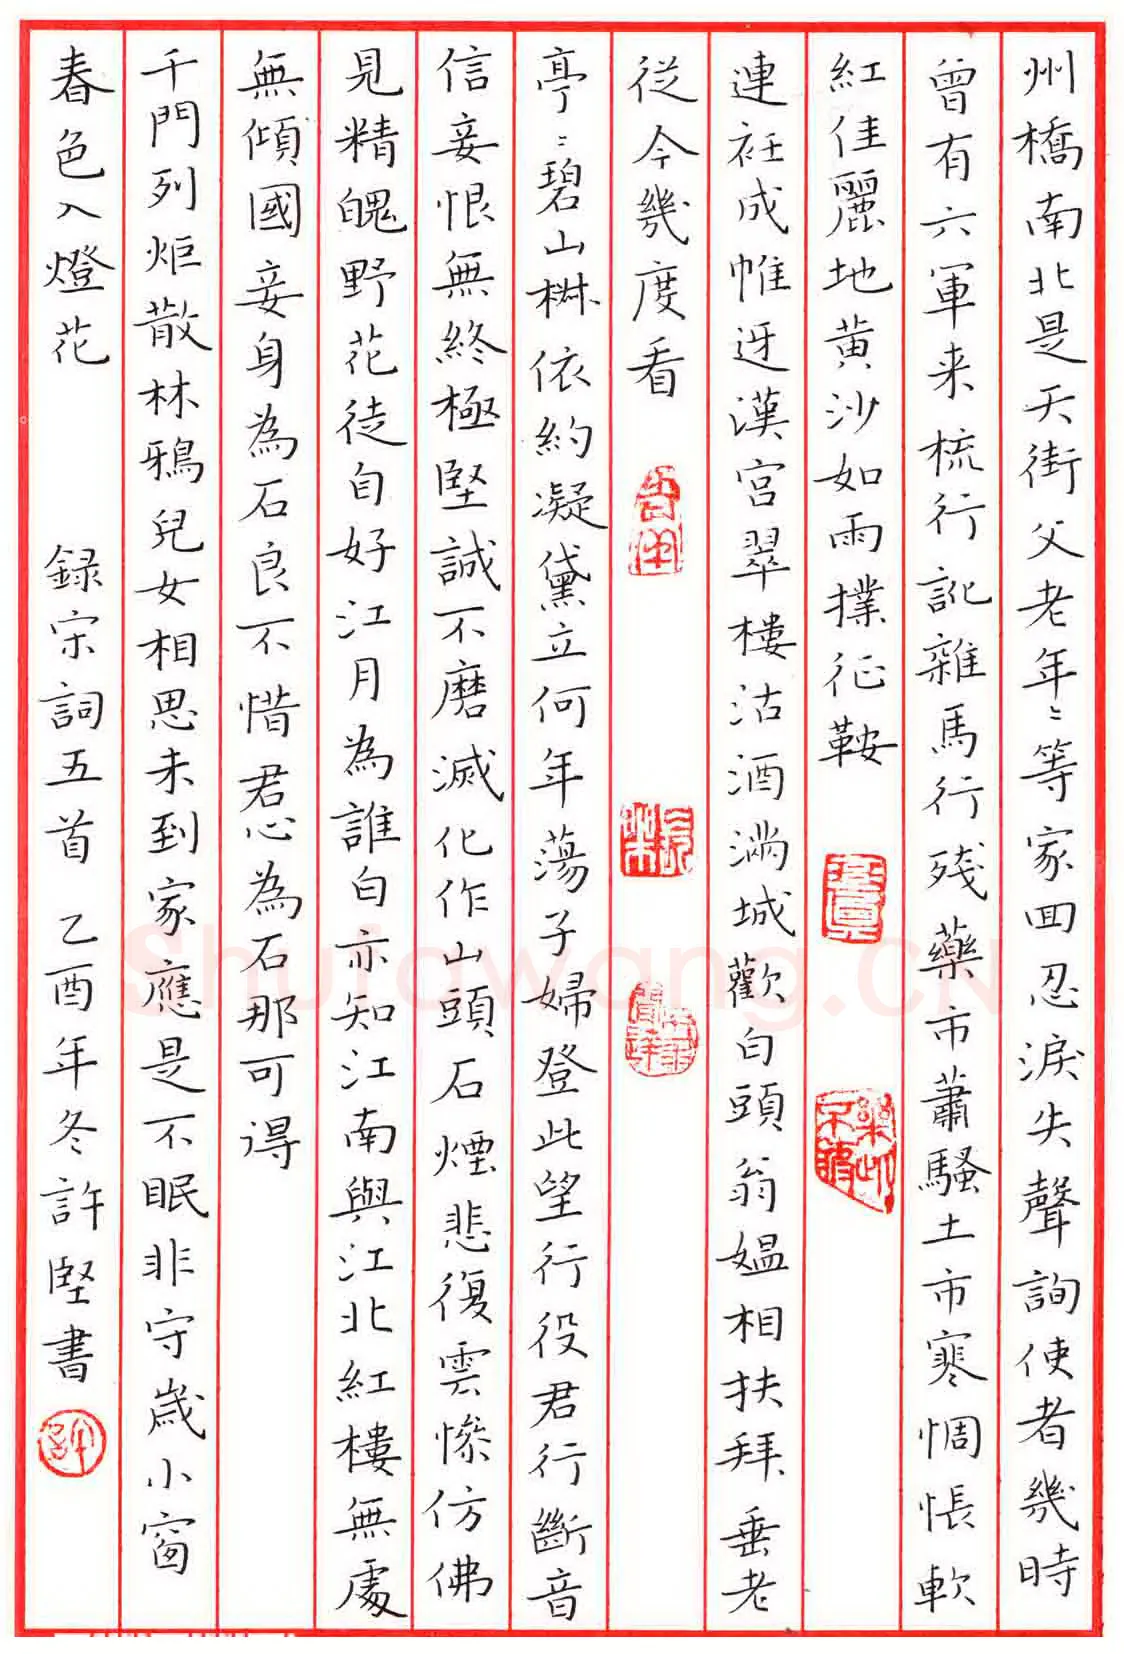 州橋南北是天街父老年〻等家回忍淚失聲詢使者幾時
曾有六軍来梳行訛雜馬行残藥市蕭騷土市寒惆悵軟
紅佳麗地黄沙如雨撲征鞍
連衽成帷迓漢宫翠樓沽酒满城歡白頭翁媪相扶拜垂老
從今幾度看
亭〻碧山椒依約凝黛立何年蕩子婦登此望行役君行斷音
信妾恨無終極堅誠不磨滅化作山頭石煙悲復雲惨仿佛
見精魄野花徒自好江月為誰白亦知江南與江北紅樓無處
無傾國妾身為石良不惜君心為石那可得
千門列炬散林鴉兒女相思未到家應是不眠非守歲小窗
春色入燈花 録宋詞五首 乙酉年冬許堅書
Shufawang.CN